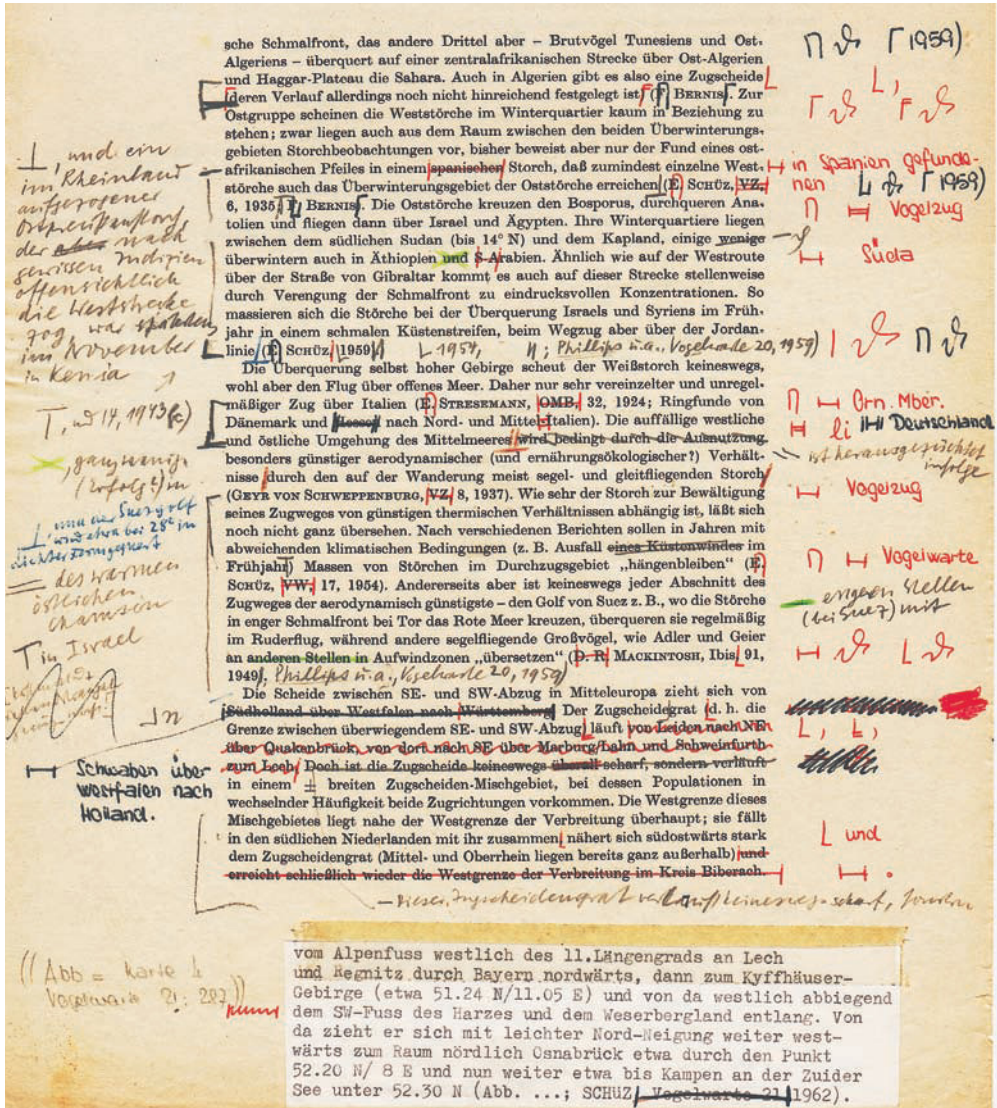 sche Schmalfront, das andere Drittel aber – Brutvögel Tunesiens und Ost-
Algeriens – überquert auf einer zentralafrikanischen Strecke über Ost-Algerien
und Haggar-Plateau die Sahara. Auch in Algerien gibt es also eine Zugscheide
deren Verlauf allerdings noch nicht hinreichend festgelegt ist (F. BERNIS). Zur
Ostgruppe scheinen die Weststörche im Winterquartier kaum in Beziehung zu
stehen; zwar liegen auch aus dem Raum zwischen den beiden Überwinterungs-
gebieten Storchbeobachtungen vor, bisher beweist aber nur der Fund eines ost-
afrikanischen Pfeiles in einem spanischen Storch, daß zumindest einzelne West-
störche auch das Überwinterungsgebiet der Oststörche erreichen (E. SCHÜZ, VZ.
6, 1935, F. BERNIS). Die Oststörche kreuzen den Bosporus, durchqueren Ana-
tolien und fliegen dann über Israel und Ägypten. Ihre Winterquartiere liegen
zwischen dem südlichen Sudan (bis 14° N) und dem Kapland, einige wenige
überwintern auch in Äthiopien und S-Arabien. Ähnlich wie auf der Westroute
über der Straße von Gibraltar kommt es auch auf dieser Strecke stellenweise
durch Verengung der Schmalfront zu eindrucksvollen Konzentrationen. So
massieren sich die Störche bei der Überquerung Israels und Syriens im Früh-
jahr in einem schmalen Küstenstreifen, beim Wegzug aber über der Jordan-
linie (E. SCHÜZ, 1959)
Die Überquerung selbst hoher Gebirge scheut der Weißstorch keineswegs,
wohl aber den Flug über offenes Meer. Daher nur sehr vereinzelter und unregel-
mäßiger Zug über Italien (E. STRESEMANN, OMB, 32, 1924; Ringfunde von
Dänemark und Hessen nach Nord- und Mittel-Italien). Die auffällige westliche
und östliche Umgehung des Mittelmeeres wird bedingt durch die Ausnutzung
besonders günstiger aerodynamischer (und ernährungsökologischer?) Verhält-
nisse durch den auf der Wanderung meist segel- und gleitfliegenden Storch
(GEYR VON SCHWEPPENBURG, VZ 8, 1937). Wie sehr der Storch zur Bewältigung
seines Zugweges von günstigen thermischen Verhältnissen abhängig ist, läßt sich
noch nicht ganz übersehen. Nach verschiedenen Berichten sollen in Jahren mit
abweichenden klimatischen Bedingungen (z. B. Ausfall eines Küstenwindes im
Frühjahr) Massen von Störchen im Durchzugsgebiet „hängenbleiben“ (E.
SCHÜZ, VW, 17, 1954). Andererseits aber ist keineswegs jeder Abschnitt des
Zugweges der aerodynamisch günstigste – den Golf von Suez z. B., wo die Störche
in enger Schmalfront bei Tor das Rote Meer kreuzen, überqueren sie regelmäßig
im Ruderflug, während andere segelfliegende Großvögel, wie Adler und Geier
an anderen Stellen in Aufwindzonen „übersetzen“ (D. R. MACKINTOSH, Ibis 91,
1949), Phillips u.a., Vogelwarte 20, 1959)
Die Scheide zwischen SE- und SW-Abzug in Mitteleuropa zieht sich von
Südholland über Westfalen nach Württemberg. Der Zugscheidegrat (d. h. die
Grenze zwischen überwiegendem SE- und SW-Abzug) läuft von Leiden nach NE
über Quakenbrück, von dort nach SE über Marburg/Lahn und Schweinfurth
zum Lech. Doch ist die Zugscheide keineswegs überall scharf, sondern verläuft
in einem ± breiten Zugscheiden-Mischgebiet, bei dessen Populationen in
wechselnder Häufigkeit beide Zugrichtungen vorkommen. Die Westgrenze dieses
Mischgebietes liegt nahe der Westgrenze der Verbreitung überhaupt; sie fällt
in den südlichen Niederlanden mit ihr zusammen, nähert sich südostwärts stark
dem Zugscheidengrat (Mittel- und Oberrhein liegen bereits ganz außerhalb) und
erreicht schließlich wieder die Westgrenze der Verbreitung im Kreis Biberach.
Dieser Zugscheidengrat verläuft keineswegs scharf, sondern
vom Alpenfuss westlich des 11.Längengrads an Lech
und Regnitz durch Bayern nordwärts, dann zum Kyffhäuser-
Gebirge (etwa 51.24 N/11.05 E) und von da westlich abbiegend
dem SW-Fuss des Harzes und dem Weserbergland entlang. Von
da zieht er sich mit leichter Nord-Neigung weiter west-
wärts zum Raum nördlich Osnabrück etwa durch den Punkt
52.20 N/ 8 E und nun weiter etwa bis Kampen an der Zuider
See unter 52.30 N (Abb. ...; SCHÜZ, Vogelwarte 21, 1962).
, und ein
im Rheinland
aufgezogener
der aber nach
gewissen Indizien
offensichtlich
die Weststrecke
zog, war
im November
in Kenia
des warmen
östlichen
Chamsin
in Israel
Schwaben über
Westfalen nach
Holland.
((Abb = Karte 4
Vogelwarte 21: 287))
1959)
in Spanien gefunde-
nen 1959)
Vogelzug
Süda
1954, ; Phillips u.a., Vogelwarte 20, 1959)
Orn. Mber.
li Deutschland
ist herausgezüchtet
infolge
Vogelzug
Vogelwarte
engeren Stellen
(bei Suez) mit
und